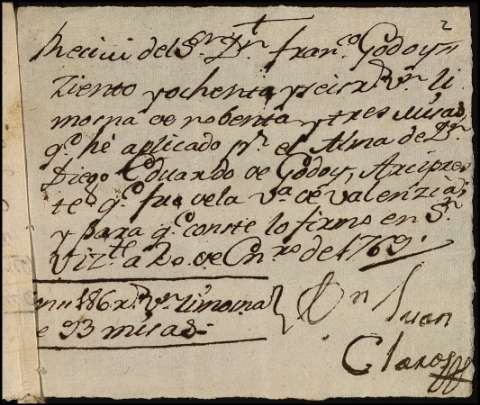 Recivi del Sr. Dn. Franco. Godoy
Ziento yochenta yseis rs. Vn. li
mosna de nobenta y tres Misas
qe. hé aplicado pr. el Alma de Dn.
Diego Eduardo de Godoy, Arcipres
te qe. fue de la Va. de Valenzia,
y para qe. conste lo firmo en Sn.
Vizte. a 20 de Enro. de 1769.
186 rs. Vn. limosna
e 93 misas
Dn Juan
Claros